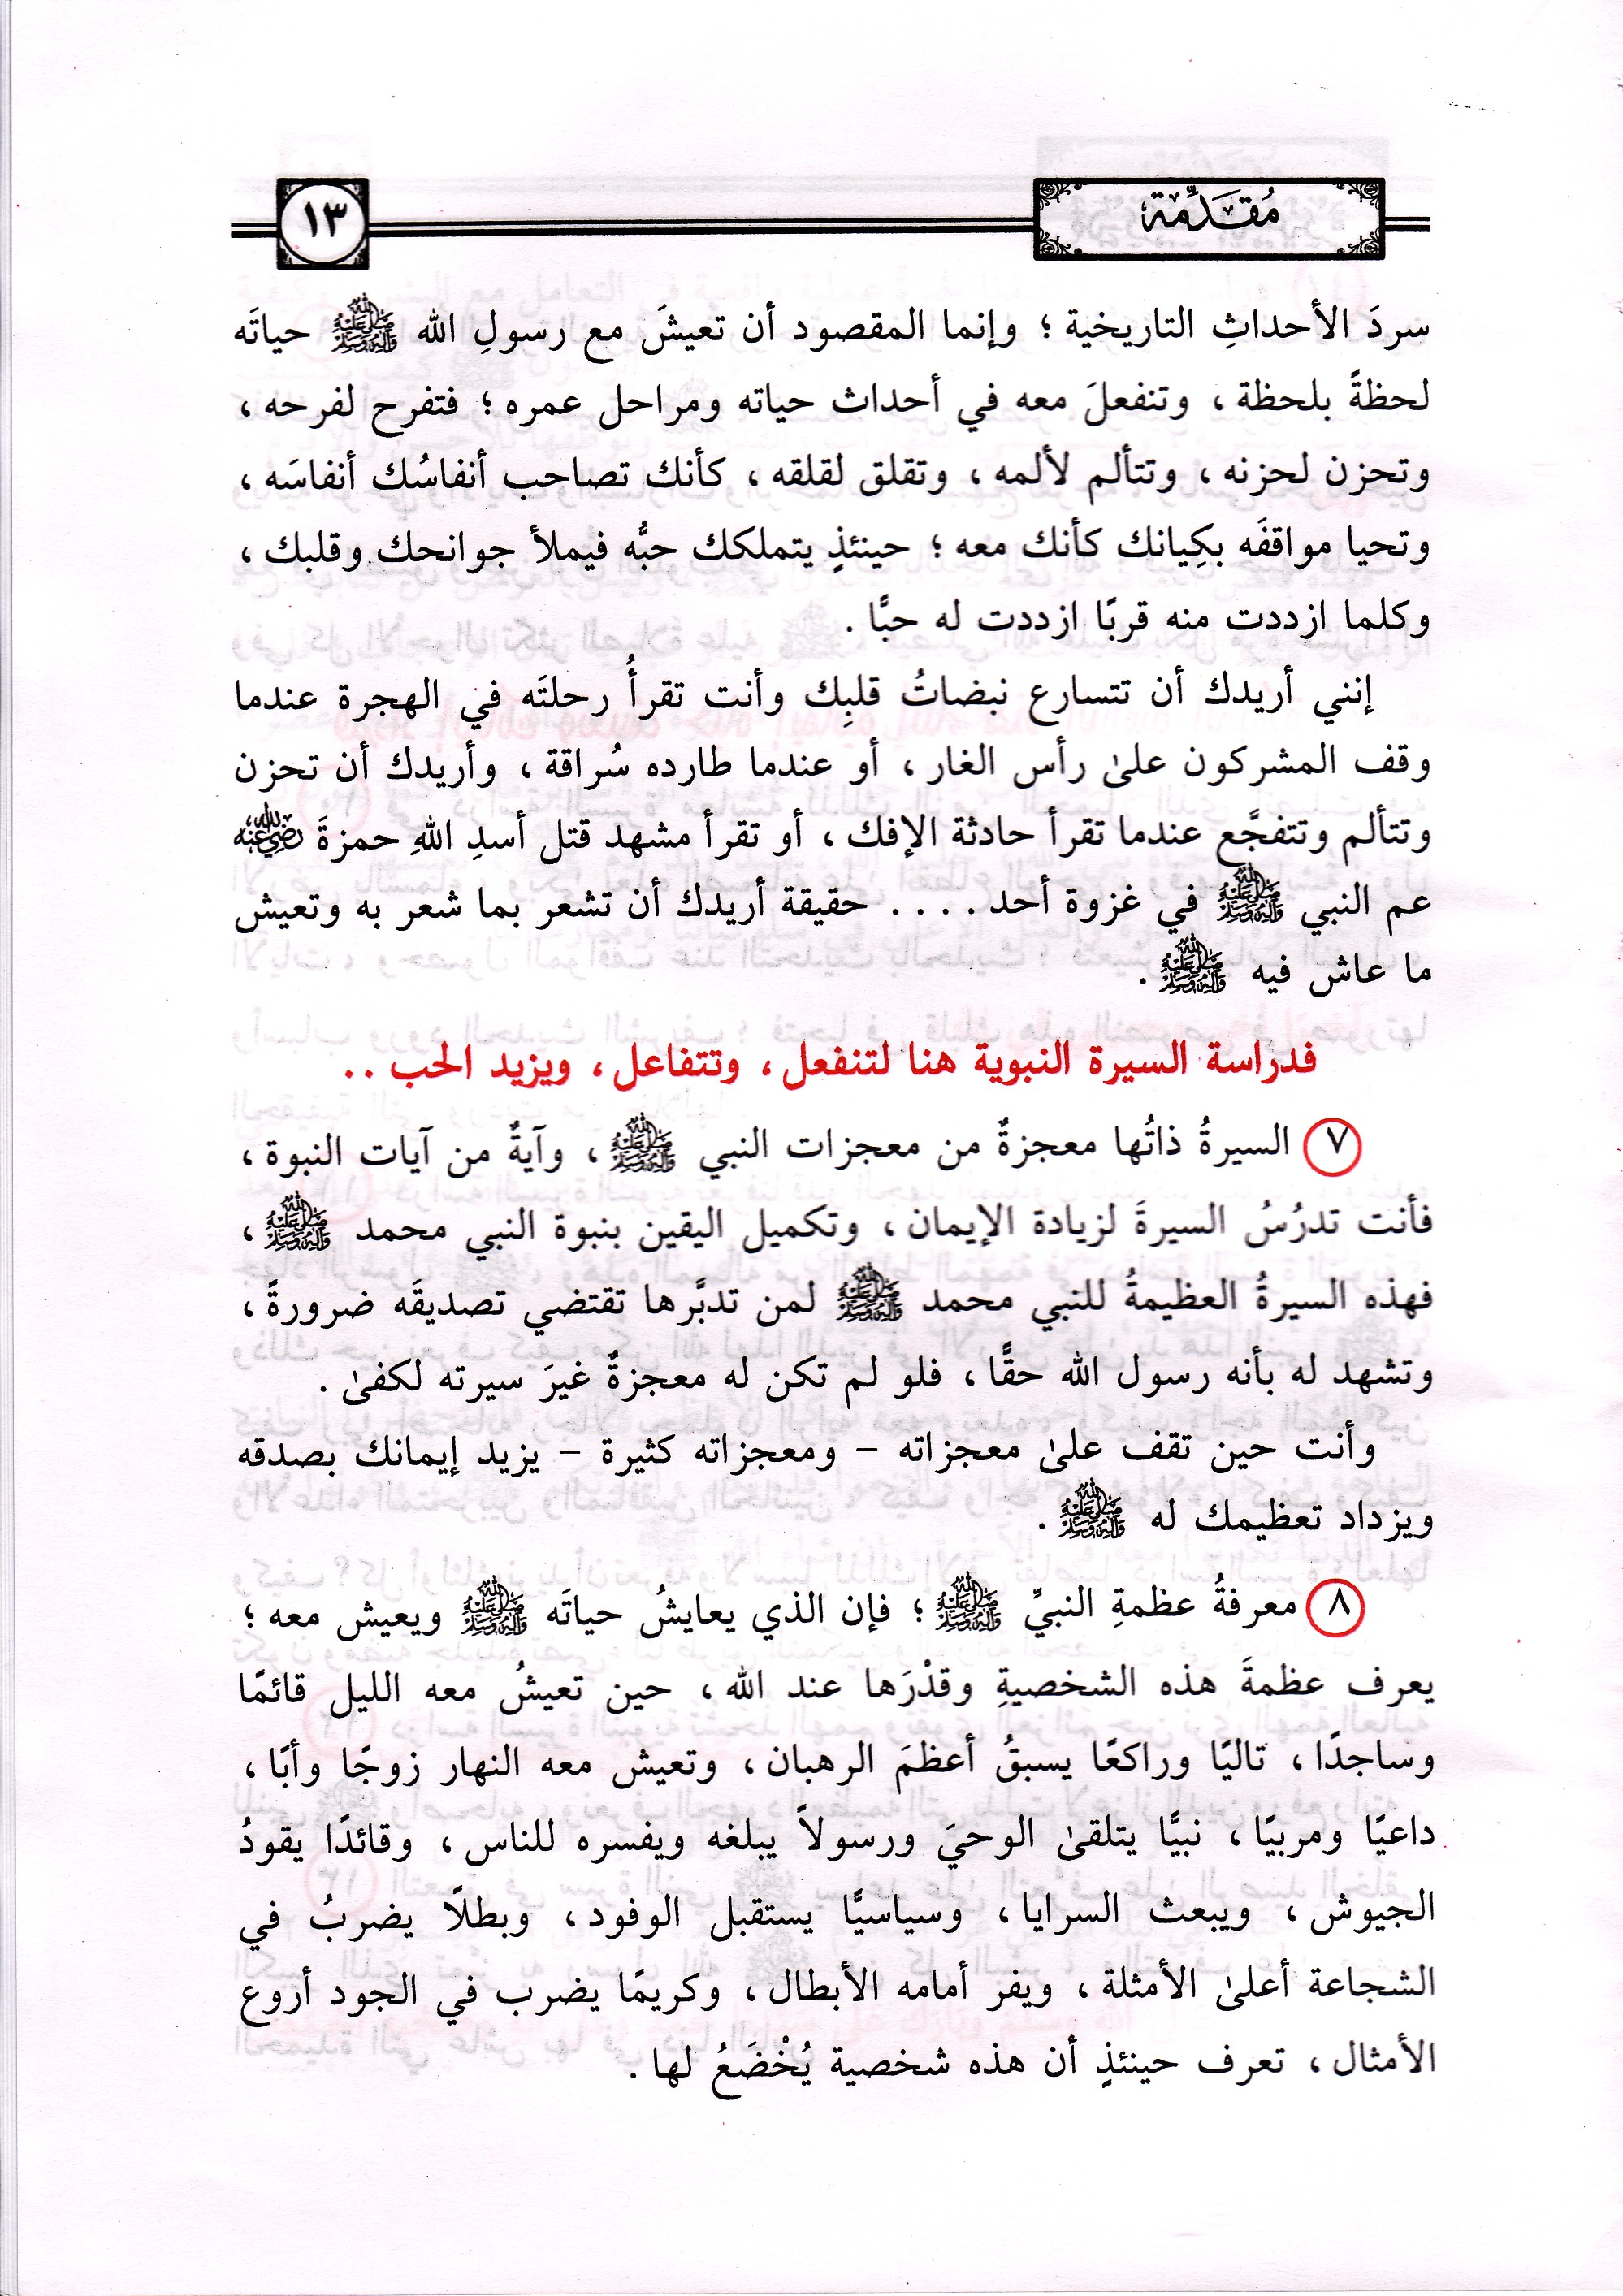 مُقَدِّمَة
١٣
سردَ الأحداثِ التاريخية ؛ وإنما المقصود أن تعيشَ مع رسولِ الله ﷺ حياتَه
لحظةً بلحظة ، وتنفعلَ معه في أحداث حياته ومراحل عمره ؛ فتفرح لفرحه ،
وتحزن لحزنه ، وتتألم لألمه ، وتقلق لقلقه ، كأنك تصاحب أنفاسُك أنفاسَه ،
وتحيا مواقفَه بكِيانك كأنك معه ؛ حينئذٍ يتملكك حبُّه فيملأ جوانحك وقلبك ،
وكلما ازددت منه قربًا ازددت له حبًّا .
إنني أريدك أن تتسارع نبضاتُ قلبِك وأنت تقرأُ رحلتَه في الهجرة عندما
وقف المشركون علىٰ رأس الغار ، أو عندما طارده سُراقة ، وأريدك أن تحزن
وتتألم وتتفجَّع عندما تقرأ حادثة الإفك ، أو تقرأ مشهد قتل أسدِ اللهِ حمزةَ رضي الله عنه
عم النبي ﷺ في غزوة أحد .... حقيقة أريدك أن تشعر بما شعر به وتعيش
ما عاش فيه ﷺ .
فدراسة السيرة النبوية هنا لتنفعل ، وتتفاعل ، ويزيد الحب ..
٧ السيرةُ ذاتُها معجزةٌ من معجزات النبي ﷺ ، وآيةٌ من آيات النبوة ،
فأنت تدرُسُ السيرةَ لزيادة الإيمان ، وتكميل اليقين بنبوة النبي محمد ﷺ ،
فهذه السيرةُ العظيمةُ للنبي محمد ﷺ لمن تدبَّرها تقتضي تصديقَه ضرورةً ،
وتشهد له بأنه رسول الله حقًّا ، فلو لم تكن له معجزةٌ غيرَ سيرته لكفىٰ .
وأنت حين تقف علىٰ معجزاته – ومعجزاته كثيرة – يزيد إيمانك بصدقه
ويزداد تعظيمك له ﷺ .
٨ معرفةُ عظمةِ النبيِّ ﷺ ؛ فإن الذي يعايشُ حياتَه ﷺ ويعيش معه ؛
يعرف عظمةَ هذه الشخصيةِ وقدْرَها عند الله ، حين تعيشُ معه الليل قائمًا
وساجدًا ، تاليًا وراكعًا يسبقُ أعظمَ الرهبان ، وتعيش معه النهار زوجًا وأبًا ،
داعيًا ومربيًا ، نبيًّا يتلقىٰ الوحيَ ورسولاً يبلغه ويفسره للناس ، وقائدًا يقودُ
الجيوش ، ويبعث السرايا ، وسياسيًّا يستقبل الوفود ، وبطلًا يضربُ في
الشجاعة أعلىٰ الأمثلة ، ويفر أمامه الأبطال ، وكريمًا يضرب في الجود أروع
الأمثال ، تعرف حينئذٍ أن هذه شخصية يُخْضَعُ لها .